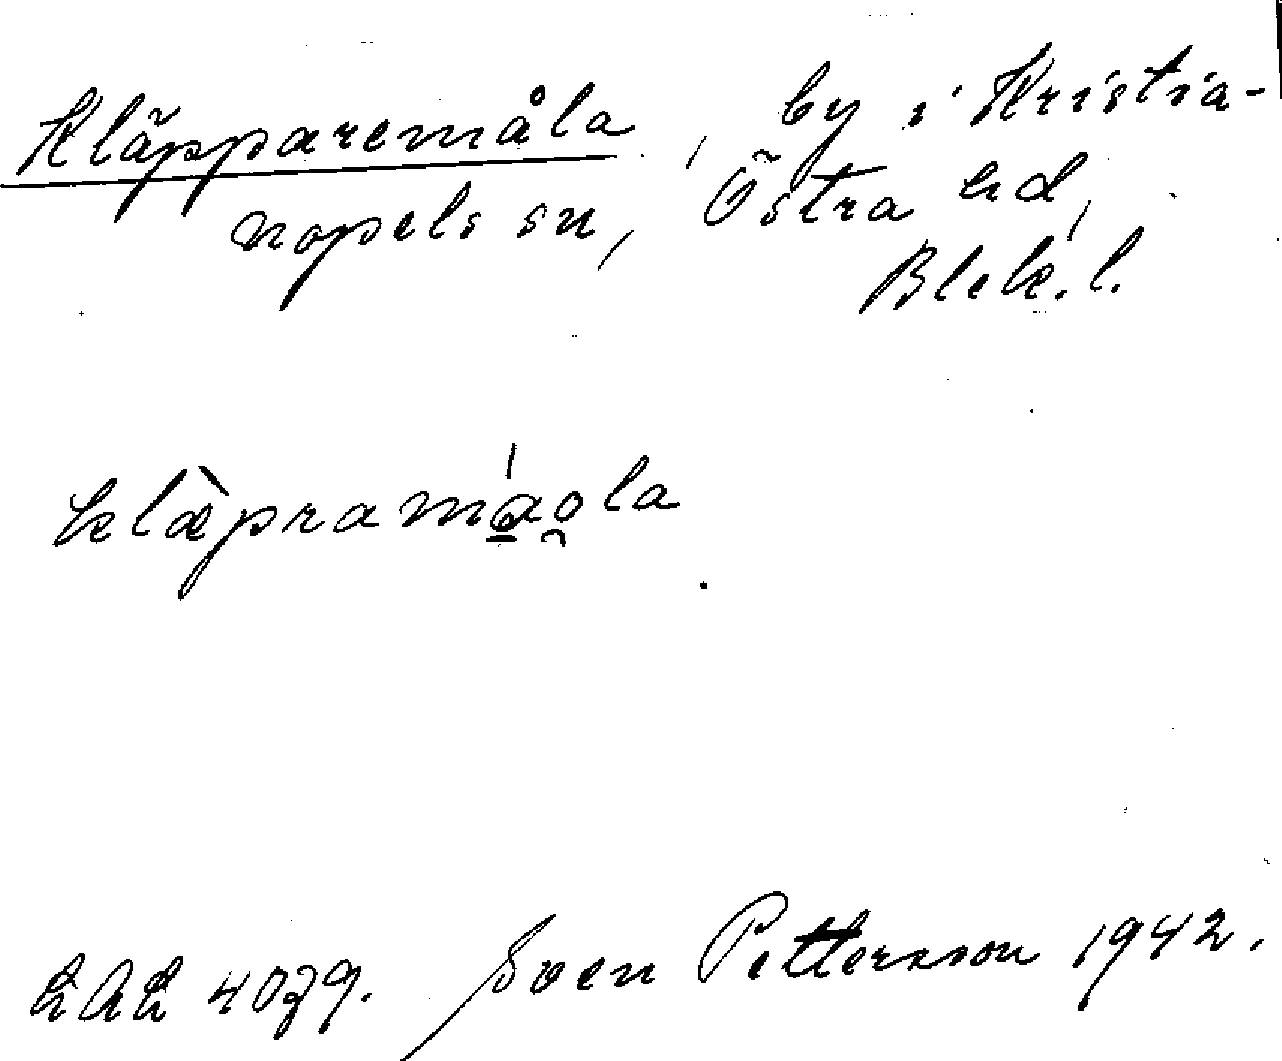 Kläpparemåla, by i Kristia-
nopels sn, Östra hd,
Blek. l.
klæ̀pramáo̯la
LAL 4079. Sven Pettersson 1942.